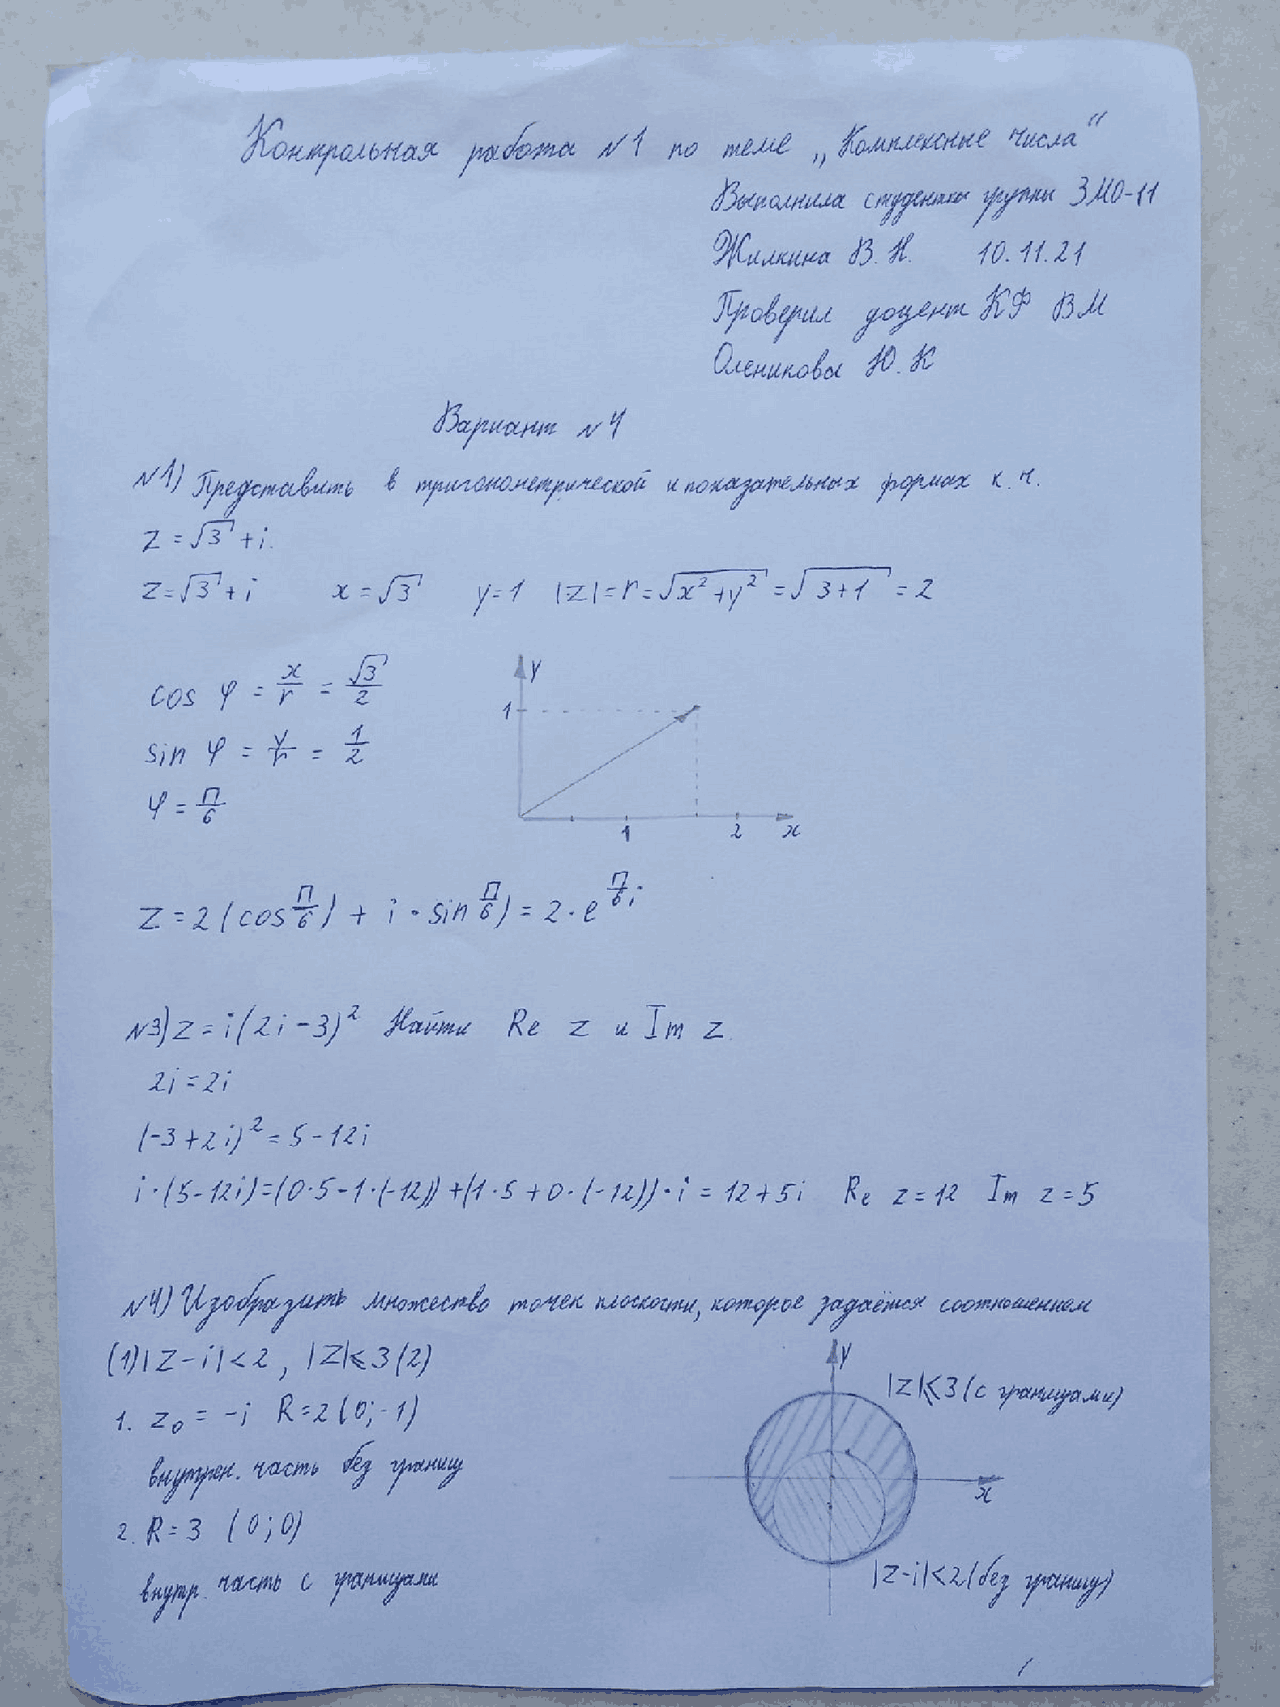 Контрольная работа №1 по теме „Комплексные числа“
Выполнила студентка группы ЗМО-11
Жилкина В. Н. 10.11.21
Проверил доцент КФ ВМ
Оленикова Ю. К
Вариант №4
№1) Представить в тригонометрической и показательных формах к. ч.
z = √3 + i.
z = √3 + i x = √3 y = 1 |z| = r = √(x² + y²) = √(3 + 1) = 2
cos φ = x/r = √3/2
sin φ = y/r = 1/2
φ = π/6
y
1
1 2 x
z = 2(cos π/6) + i · sin π/6) = 2 · e^(π/6 i)
№3) z = i(2i - 3)² Найти Re z и Im z.
2i = 2i
(-3 + 2i)² = 5 - 12i
i · (5 - 12i) = (0·5 - 1·(-12)) + (1·5 + 0·(-12)) · i = 12 + 5i Re z = 12 Im z = 5
№4) Изобразить множество точек плоскости, которое задаётся соотношением
(1) |z - i| < 2, |z| ⩽ 3 (2)
1. z₀ = -i R = 2 (0; -1)
внутрен. часть без границ
2. R = 3 (0; 0)
внутр. часть с границами
y
|z| ⩽ 3 (с границами)
x
|z - i| < 2 (без границ)